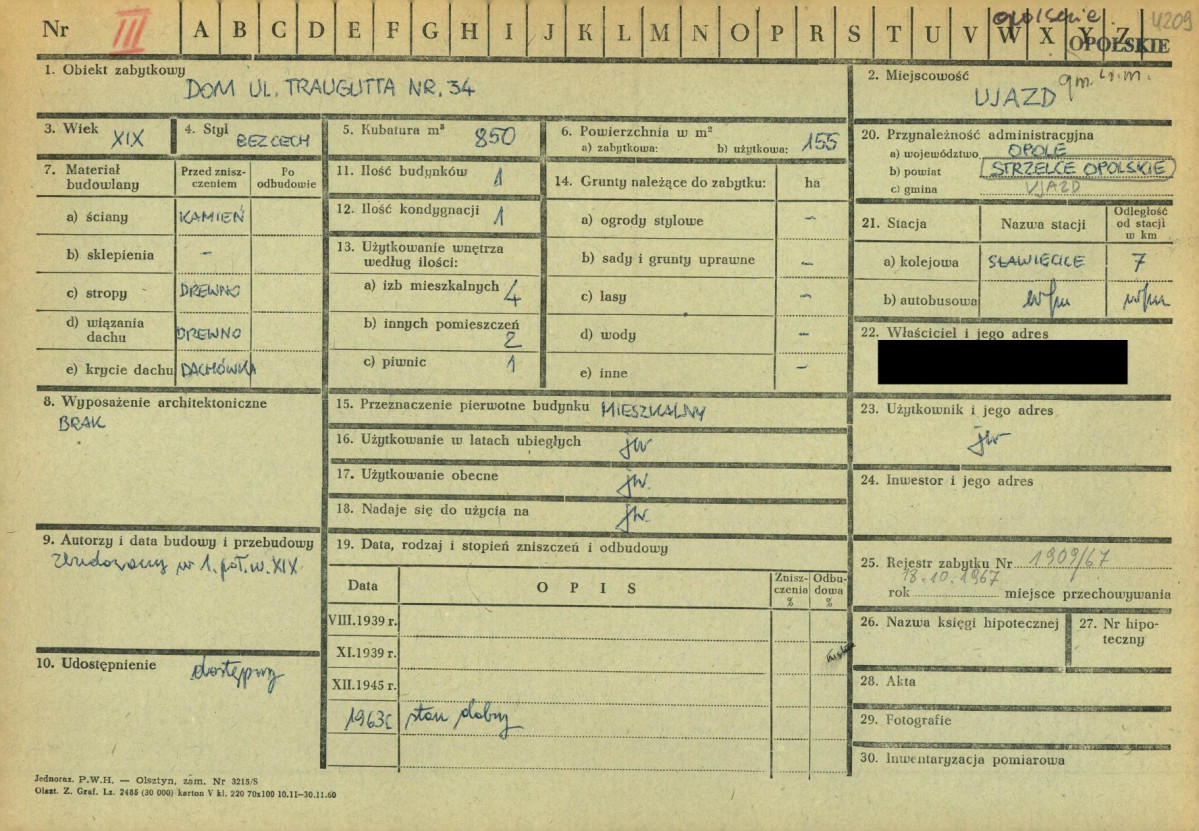 opolskie 4209
Nr III A B C D E F G H I J K L M N O P R S T U V W X Y Z
OPOLSKIE
1. Obiekt zabytkowy
DOM UL. TRAUGUTTA NR. 34
2. Miejscowość
UJAZD
3. Wiek XIX
4. Styl BEZ CECH
5. Kubatura m³ 850
6. Powierzchnia w m²
a) zabytkowa: b) użytkowa: 155
7. Materiał budowlany
Przed znisz-
czeniem
Po
odbudowie
a) ściany KAMIEŃ
b) sklepienia –
c) stropy DREWNO
d) wiązania
dachu DREWNO
e) krycie dachu DACHÓWKA
8. Wyposażenie architektoniczne
BRAK
9. Autorzy i data budowy i przebudowy
Zbudowany w 1. poł. w. XIX
10. Udostępnienie dostępny
11. Ilość budynków 1
12. Ilość kondygnacji 1
13. Użytkowanie wnętrza
według ilości:
a) izb mieszkalnych 4
b) innych pomieszczeń
2
c) piwnic 1
14. Grunty należące do zabytku: ha
a) ogrody stylowe –
b) sady i grunty uprawne –
c) lasy –
d) wody –
e) inne –
15. Przeznaczenie pierwotne budynku MIESZKALNY
16. Użytkowanie w latach ubiegłych jw
17. Użytkowanie obecne jw.
18. Nadaje się do użycia na jw.
19. Data, rodzaj i stopień zniszczeń i odbudowy
Data OPIS
Znisz-
czenia
%
Odbu-
dowa
%
VIII.1939 r.
XI.1939 r.
XII.1945 r.
1963 stan dobry
20. Przynależność administracyjna
a) województwo OPOLE
b) powiat STRZELCE OPOLSKIE
c) gmina UJAZD
21. Stacja Nazwa stacji
Odległość
od stacji
w km
a) kolejowa SŁAWIĘCICE 7
b) autobusowa w/m w/m
22. Właściciel i jego adres
23. Użytkownik i jego adres
jw
24. Inwestor i jego adres
25. Rejestr zabytku Nr 1909/67
18.10.1967
rok miejsce przechowywania
26. Nazwa księgi hipotecznej
27. Nr hipo-
teczny
28. Akta
29. Fotografie
30. Inwentaryzacja pomiarowa
Jednoraz. P.W.H. — Olsztyn, zam. Nr 3215/S
Olszt. Z. Graf. Lz. 2485 (30 000) karton V kl. 220 70x100 10.11–30.11.60